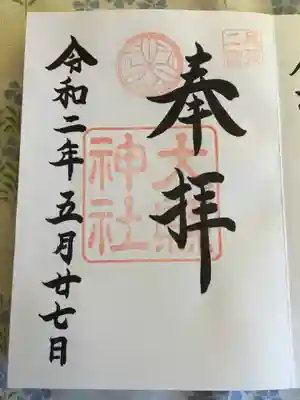 奉拝
大縣神社
令和二年五月廿七日